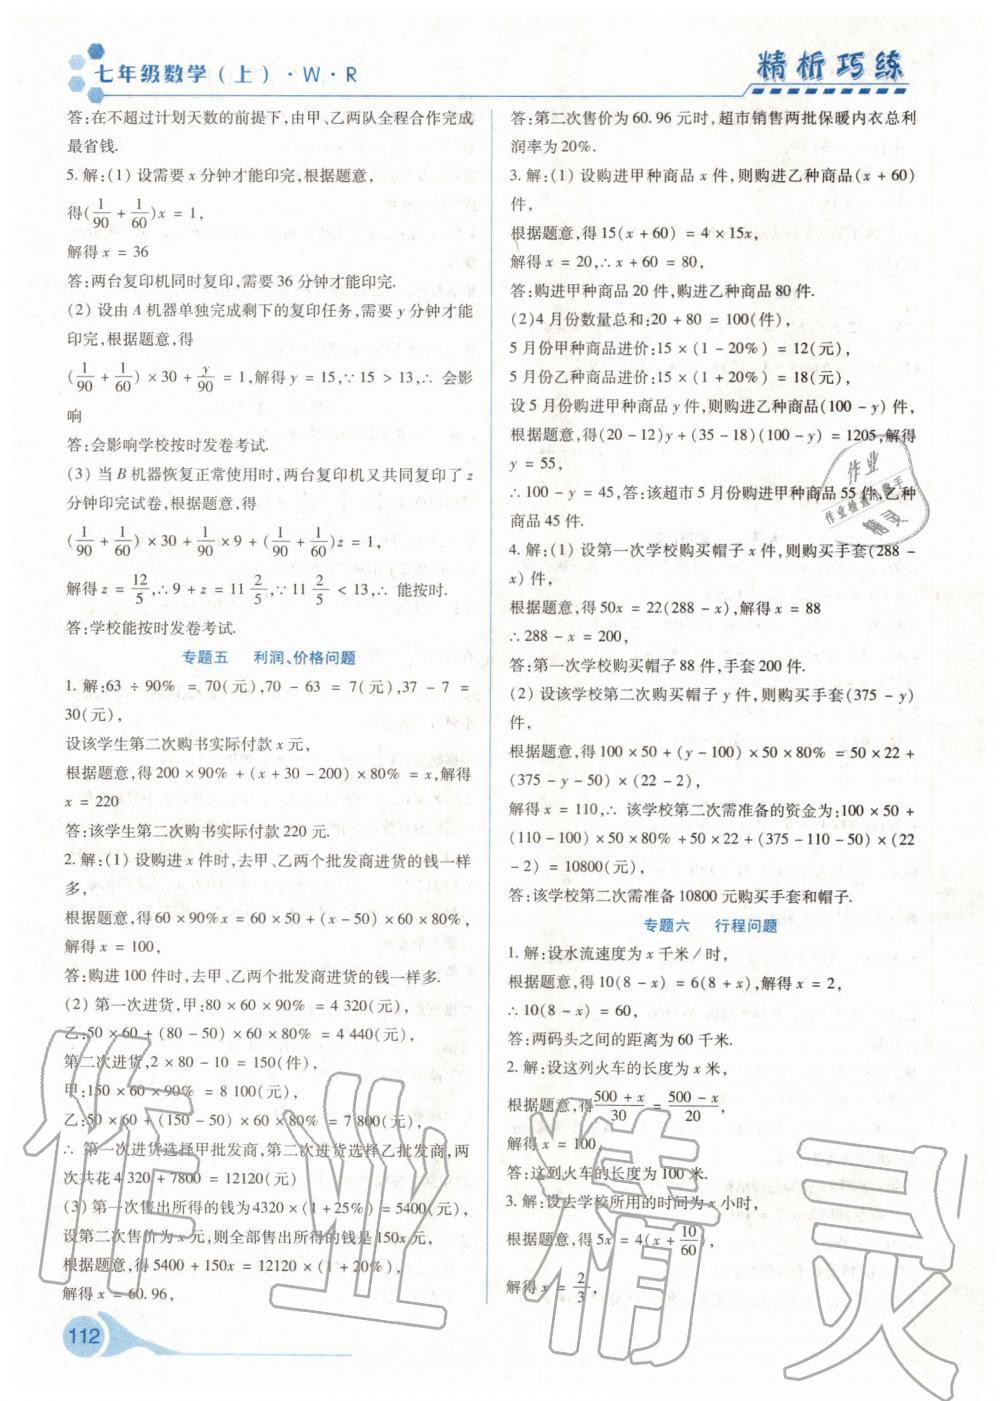 七年级数学(上)·W·R
精析巧练
答:在不超过计划天数的前提下,由甲、乙两队全程合作完成
最省钱.
5. 解:(1) 设需要 x 分钟才能印完,根据题意,
得(1/90 + 1/60)x = 1,
解得 x = 36
答:两台复印机同时复印,需要 36 分钟才能印完.
(2) 设由 A 机器单独完成剩下的复印任务,需要 y 分钟才能
印完,根据题意,得
(1/90 + 1/60) × 30 + y/90 = 1,解得 y = 15,∵ 15 > 13,∴ 会影
响
答:会影响学校按时发卷考试.
(3) 当 B 机器恢复正常使用时,两台复印机又共同复印了 z
分钟印完试卷,根据题意,得
(1/90 + 1/60) × 30 + 1/90 × 9 + (1/90 + 1/60)z = 1,
解得 z = 12/5,∴ 9 + z = 11 2/5,∵ 11 2/5 < 13,∴ 能按时.
答:学校能按时发卷考试.
专题五 利润、价格问题
1. 解:63 ÷ 90% = 70(元),70 - 63 = 7(元),37 - 7 =
30(元),
设该学生第二次购书实际付款 x 元,
根据题意,得 200 × 90% + (x + 30 - 200) × 80% = x,解得
x = 220
答:该学生第二次购书实际付款 220 元.
2. 解:(1) 设购进 x 件时,去甲、乙两个批发商进货的钱一样
多,
根据题意,得 60 × 90%x = 60 × 50 + (x - 50) × 60 × 80%,
解得 x = 100,
答:购进 100 件时,去甲、乙两个批发商进货的钱一样多.
(2) 第一次进货,甲:80 × 60 × 90% = 4 320(元),
乙:50 × 60 + (80 - 50) × 60 × 80% = 4 440(元),
第二次进货,2 × 80 - 10 = 150(件),
甲:150 × 60 × 90% = 8 100(元),
乙:50 × 60 + (150 - 50) × 60 × 80% = 7 800(元),
∴ 第一次进货选择甲批发商,第二次进货选择乙批发商,两
次共花 4 320 + 7800 = 12120(元)
(3) 第一次售出所得的钱为4320 × (1 + 25%) = 5400(元),
设第二次售价为 x 元,则全部售出所得的钱是150x 元,
根据题意,得 5400 + 150x = 12120 × (1 + 20%),
解得 x = 60.96,
答:第二次售价为 60.96 元时,超市销售两批保暖内衣总利
润率为 20%.
3. 解:(1) 设购进甲种商品 x 件,则购进乙种商品(x + 60)
件,
根据题意,得 15(x + 60) = 4 × 15x,
解得 x = 20,∴ x + 60 = 80,
答:购进甲种商品 20 件,购进乙种商品 80 件.
(2)4 月份数量总和:20 + 80 = 100(件),
5 月份甲种商品进价:15 × (1 - 20%) = 12(元),
5 月份乙种商品进价:15 × (1 + 20%) = 18(元),
设 5 月份购进甲种商品 y 件,则购进乙种商品(100 - y) 件,
根据题意,得(20 - 12)y + (35 - 18)(100 - y) = 1205,解得
y = 55,
∴ 100 - y = 45,答:该超市 5 月份购进甲种商品 55 件,乙种
商品 45 件.
4. 解:(1) 设第一次学校购买帽子 x 件,则购买手套(288 -
x) 件,
根据题意,得 50x = 22(288 - x),解得 x = 88
∴ 288 - x = 200,
答:第一次学校购买帽子 88 件,手套 200 件.
(2) 设该学校第二次购买帽子 y 件,则购买手套(375 - y)
件,
根据题意,得 100 × 50 + (y - 100) × 50 × 80% = 50 × 22 +
(375 - y - 50) × (22 - 2),
解得 x = 110,∴ 该学校第二次需准备的资金为:100 × 50 +
(110 - 100) × 50 × 80% + 50 × 22 + (375 - 110 - 50) × (22
- 2) = 10800(元),
答:该学校第二次需准备 10800 元购买手套和帽子.
专题六 行程问题
1. 解:设水流速度为 x 千米/时,
根据题意,得 10(8 - x) = 6(8 + x),解得 x = 2,
∴ 10(8 - x) = 60,
答:两码头之间的距离为 60 千米.
2. 解:设这列火车的长度为 x 米,
根据题意,得 (500 + x)/30 = (500 - x)/20,
解得 x = 100
答:这列火车的长度为 100 米.
3. 解:设去学校所用的时间为 x 小时,
根据题意,得 5x = 4(x + 10/60),
解得 x = 2/3,
112
作业精灵
作业
精灵